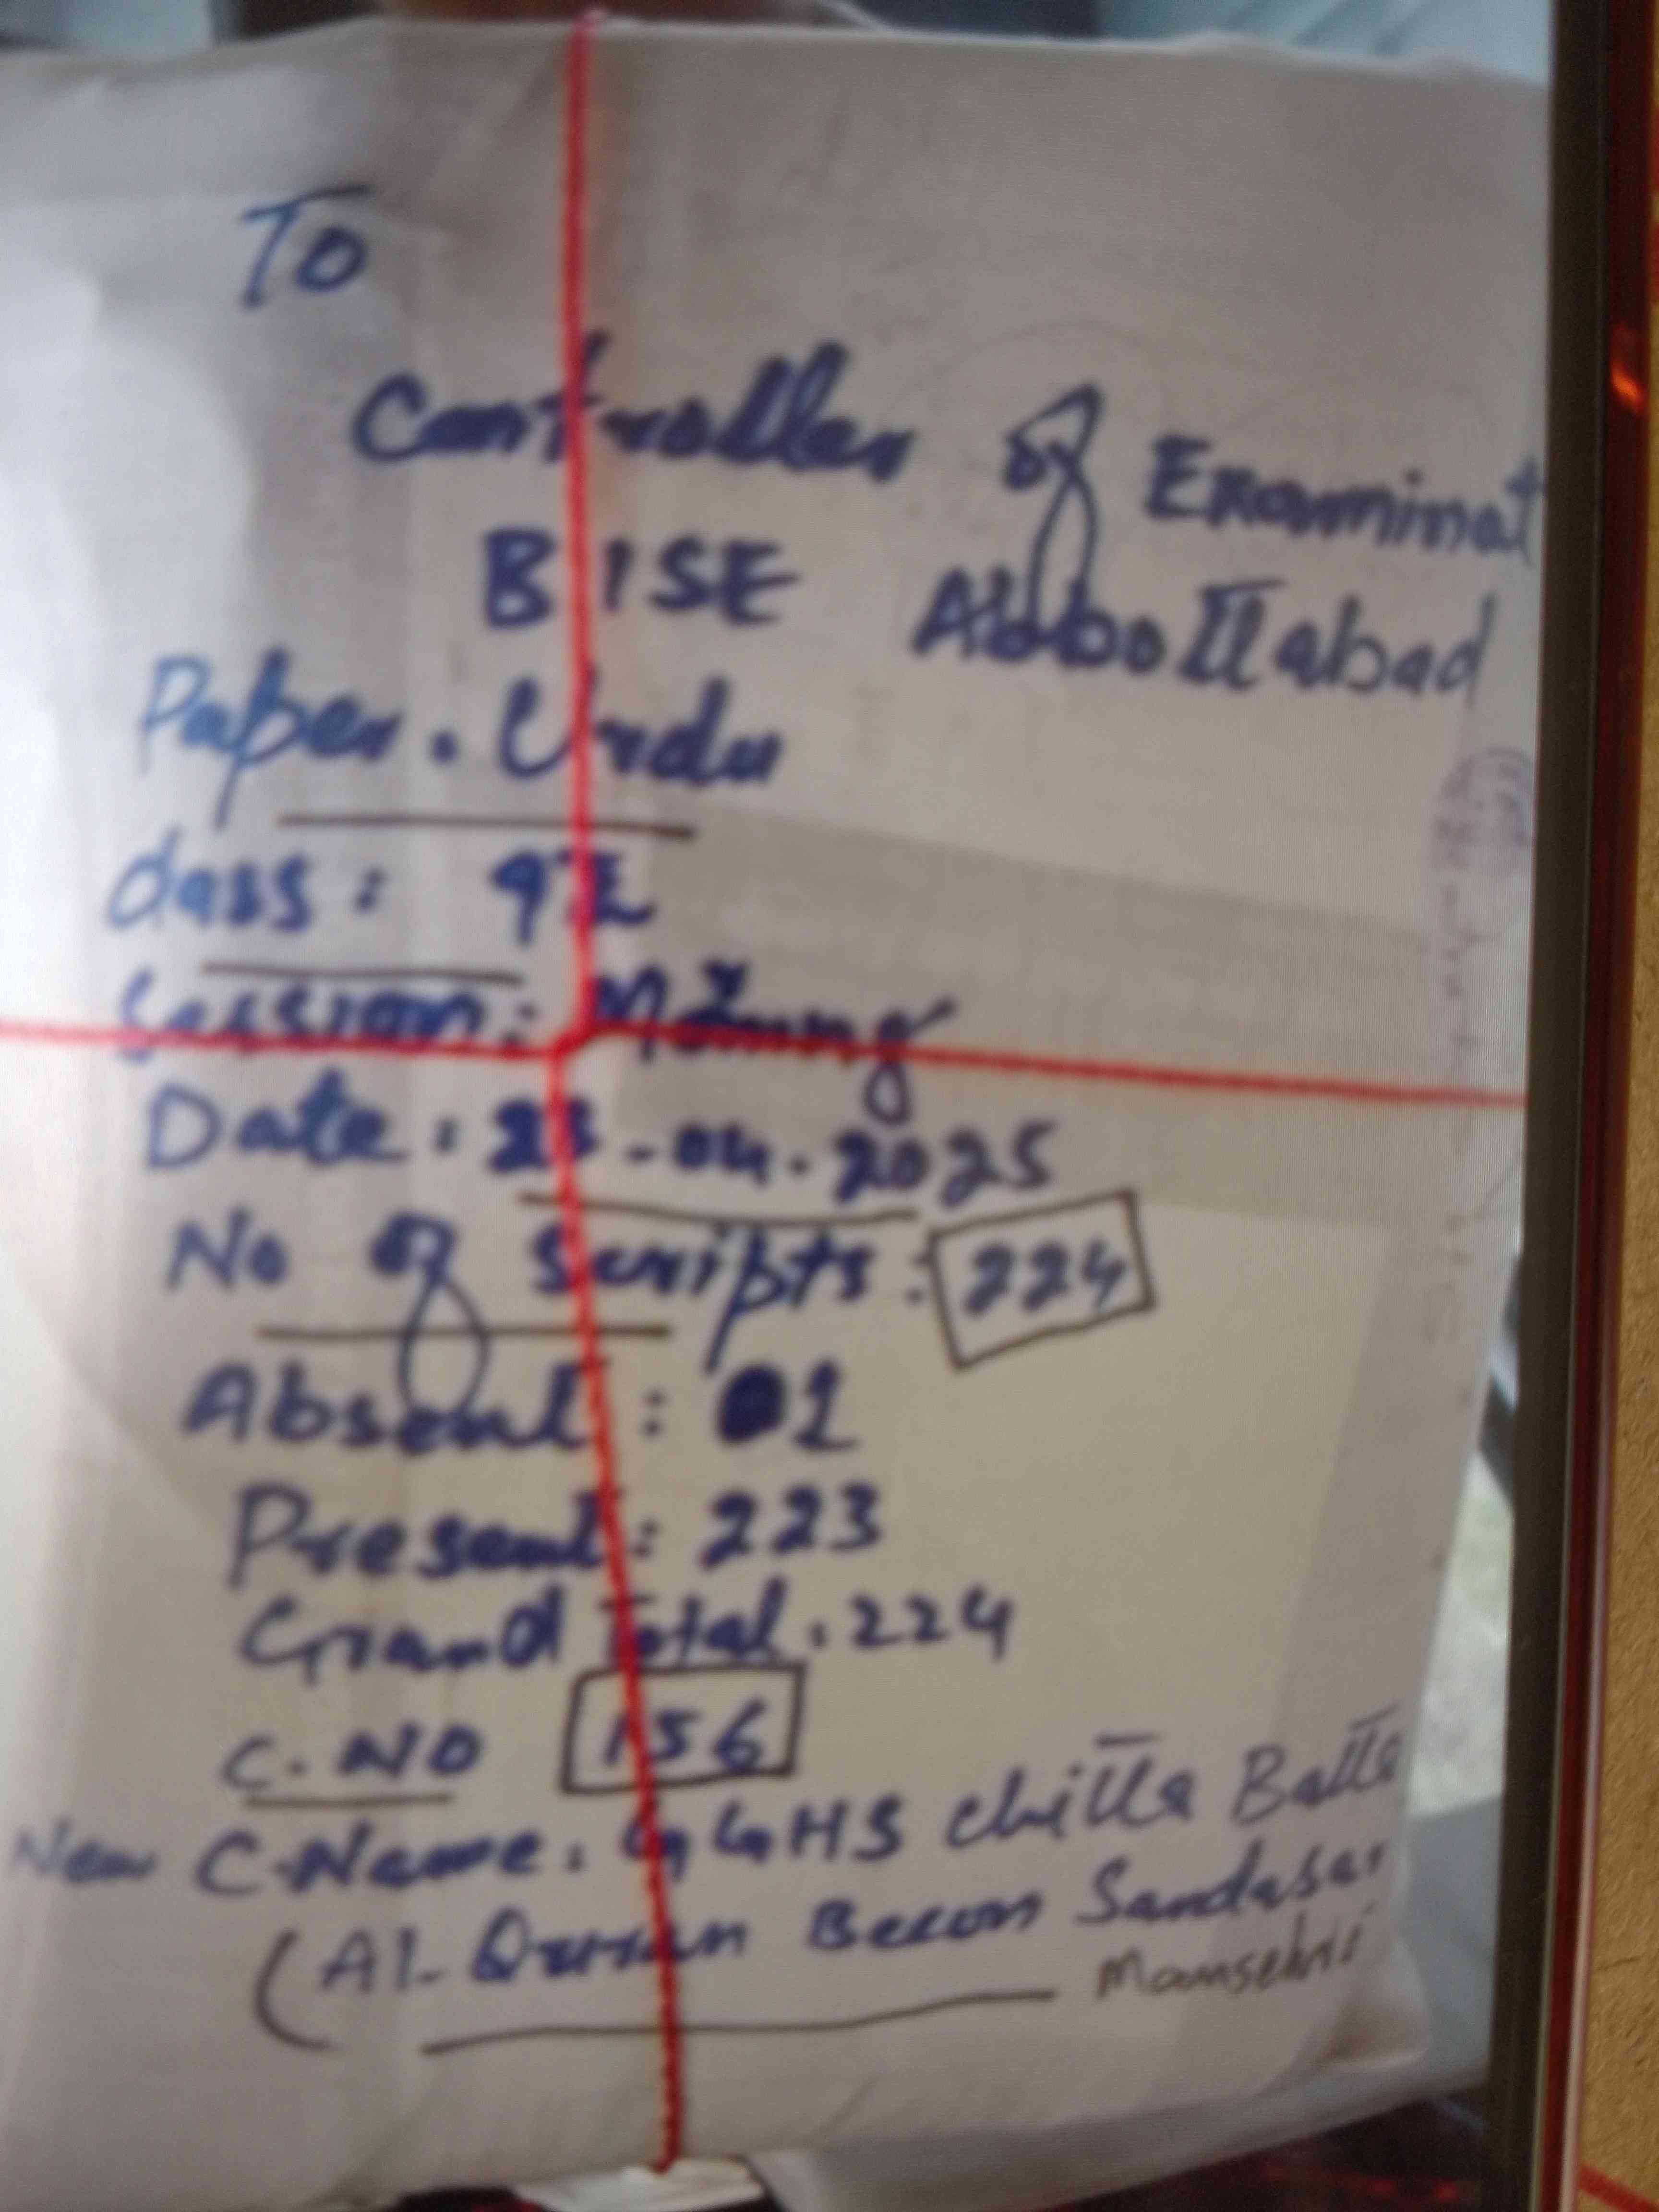 To
Controller of Examinat
BISE Abbottabad
Paper. Urdu
Class: 9th
Session: Morning
Date: 23-04-2025
No of Scripts: 224
Absent: 01
Present: 223
Grand Total: 224
C.NO 156
New C-Name: GGHS Chitta Batta
(Al-Quran Becon Sandasar
Mansehra